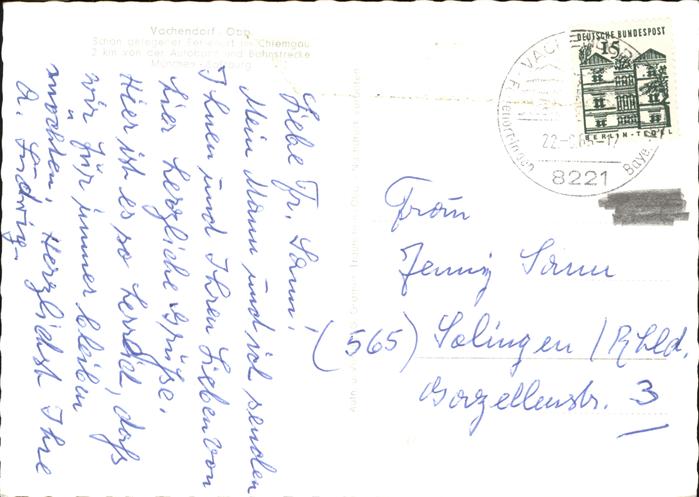 Vachendorf - Obb.
Schön gelegener Ferienort im Chiemgau
2 km von der Autobahn und Bahnstrecke
München - Salzburg
Liebe Fr. Sann!
Mein Mann und ich senden
Ihnen und Ihren Lieben von
hier herzliche Grüße.
Hier ist es so herrlich, daß
wir für immer bleiben
möchten. Herzlichst Ihre
A. Ludwig.
DEUTSCHE BUNDESPOST
15
BERLIN-TEGEL
8221
Frau
Jenny Sann
(565) Solingen / Rhld.
Gazellenstr. 3